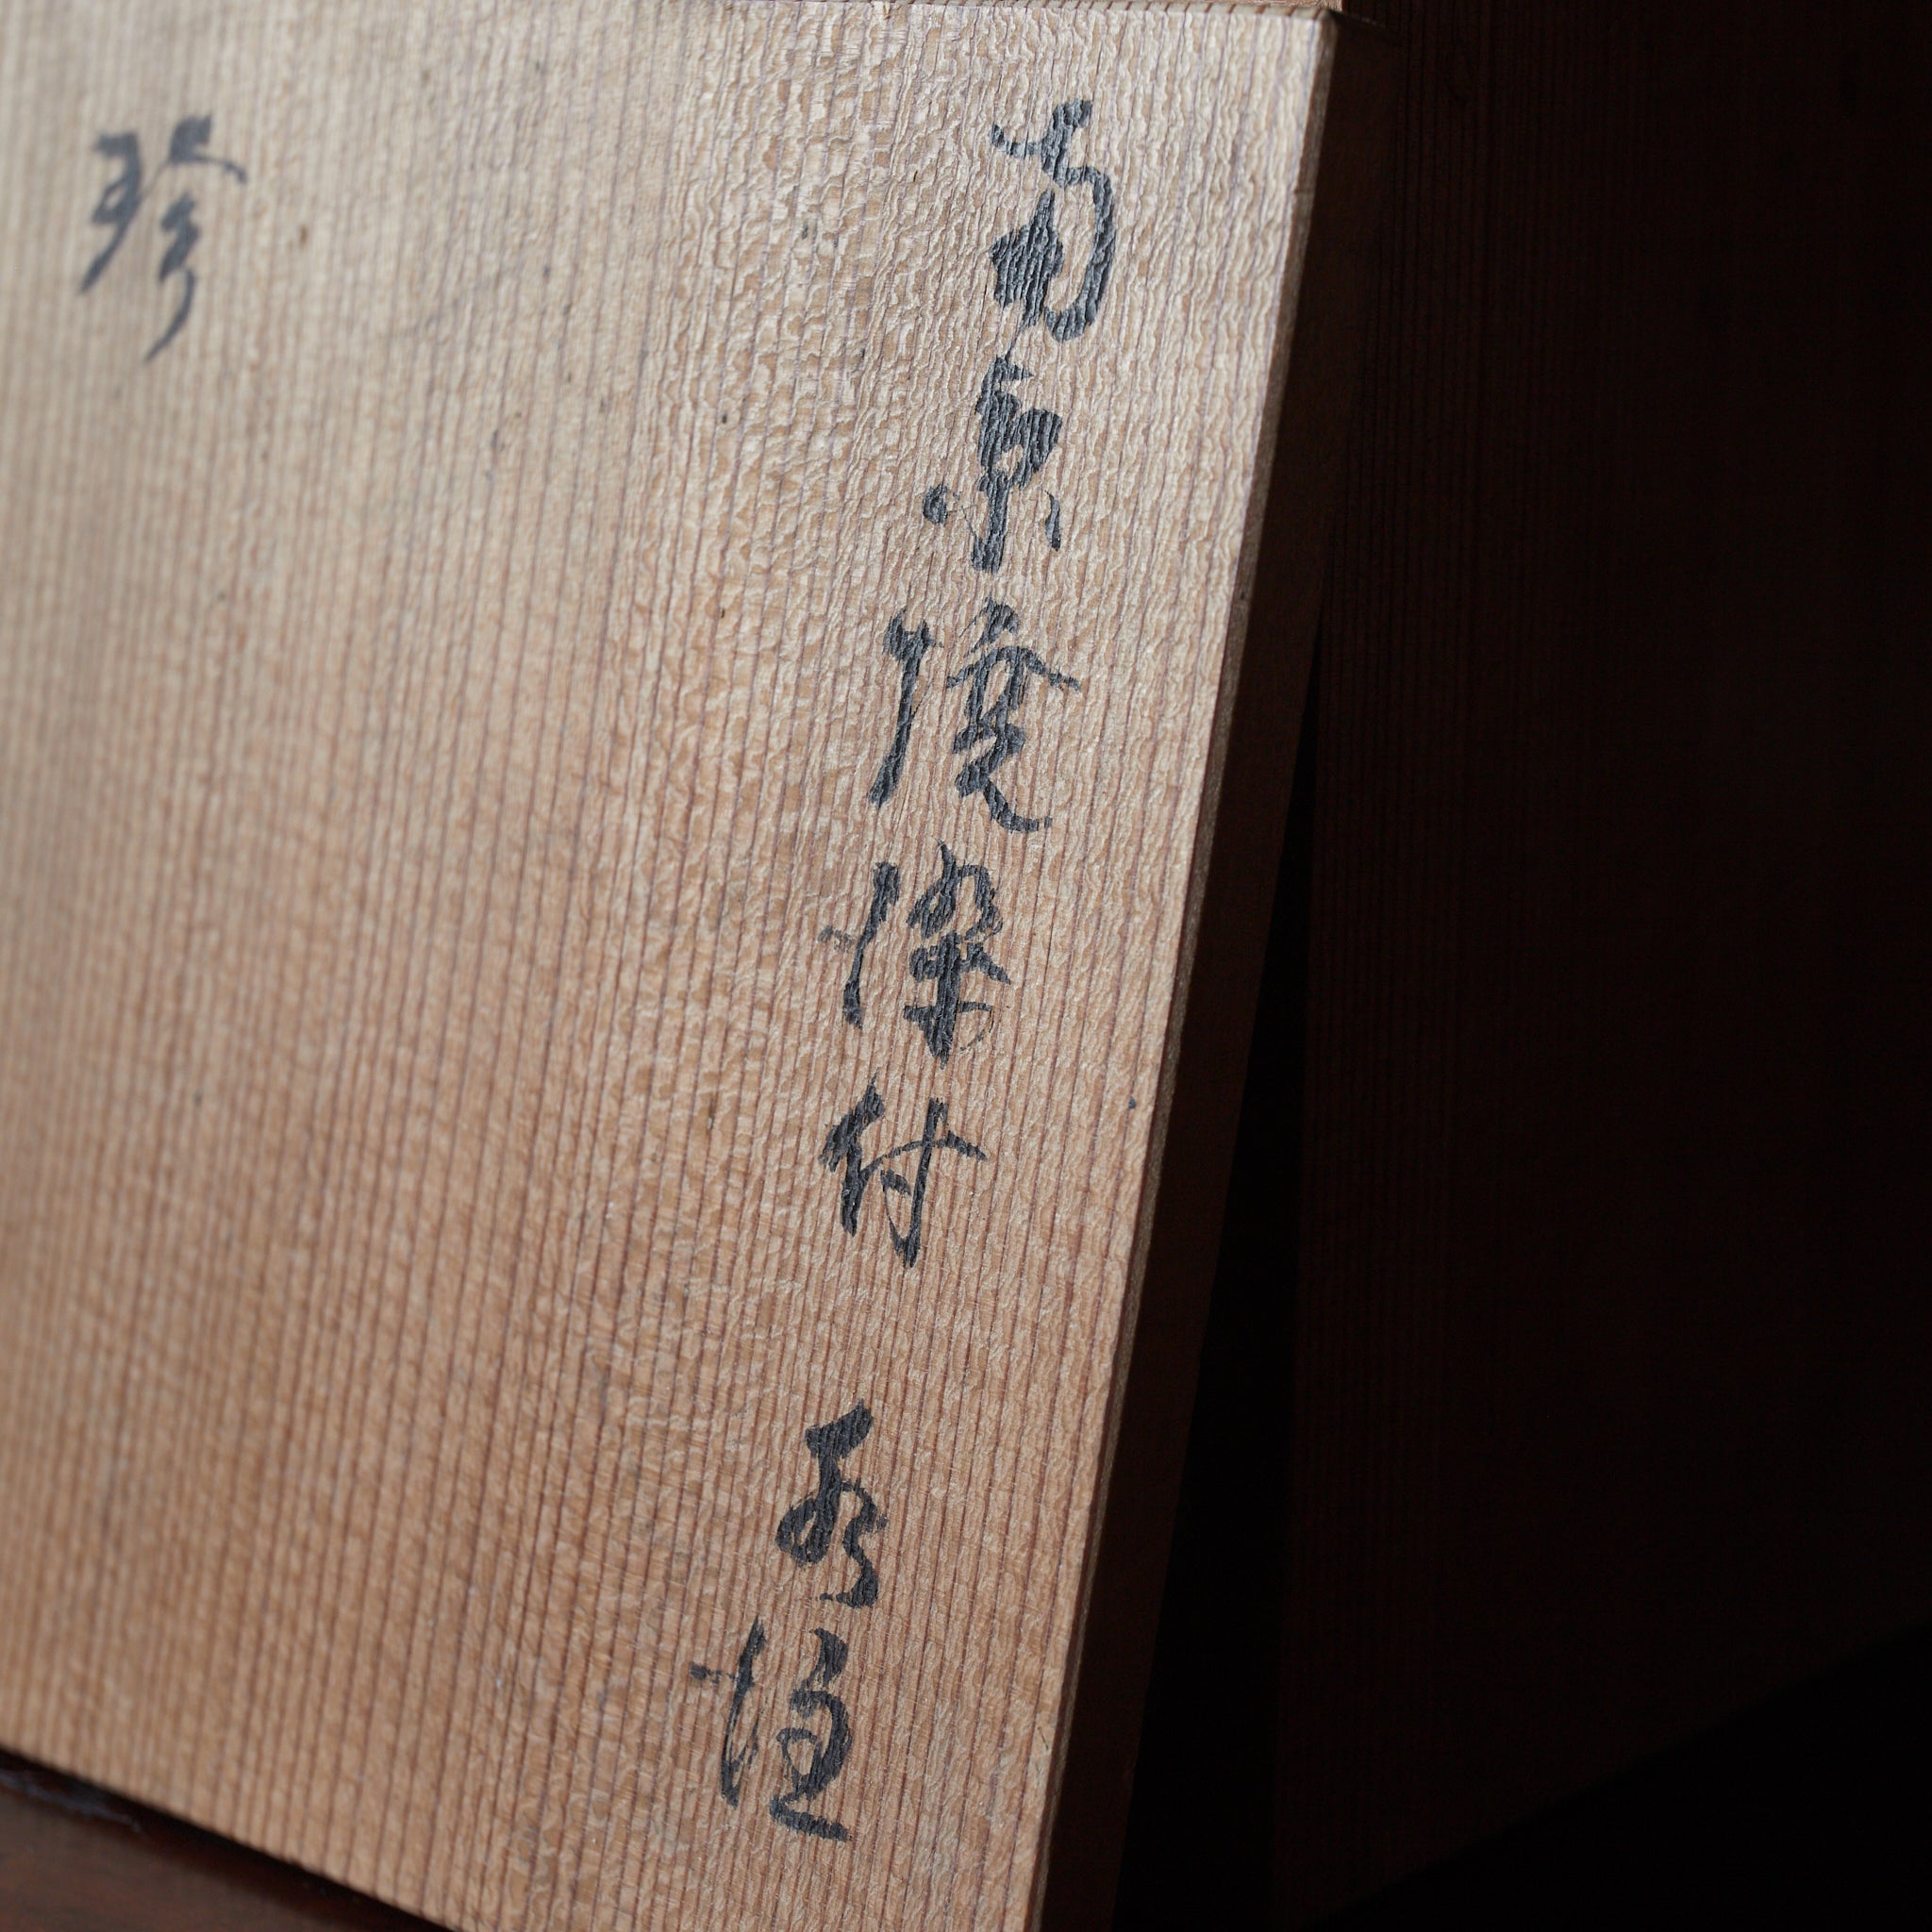 南京焼染付 水指
珍